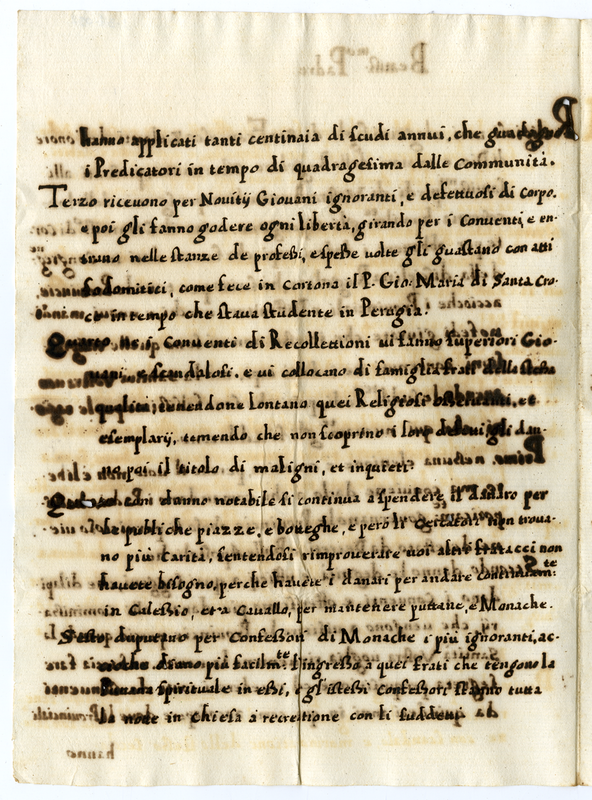 hanno applicati tanti centinaia di scudi annui, che guadagnano
i Predicatori in tempo di quadragesima dalle Communità.
Terzo ricevono per Novitij Giovani ignoranti, e defettuosi di corpo.
e poi gli fanno godere ogni libertà, girando per i Conventi, e en-
trano nelle stanze de professi, e spesse volte gli guastano con atti
sodomitici, come fece in Cortona il P. Gio: Maria di Santa Cro-
ce in tempo che stava studente in Perugia.
Quarto Conventi di Recollettioni vi fanno superiori Gio-
vani, e scandalosi. e vi collocano di famiglia frati della stessa
qualità, tenendone lontano quei Religiosi et
esemplarij, temendo che non scoprino i loro dan-
poi il titolo di maligni, et inquieti.
con danno notabile si continua a spendere il per
le publiche piazze, e botteghe, e però li non trova-
no più carità, sentendosi rimproverare voi altri fratacci non
havete bisogno, perche havete i danari per andare
in Calessio, et a Cavallo, per mantenere puttane, e Monache.
Sesto deputano per Confessori di Monache i più ignoranti, ac-
diano più facilm.te l'ingresso a quei frati che tengono la
spirituale in essi, e gl'istessi confessori stanno tutta
la notte in chiesa a recreatione con li suddetti